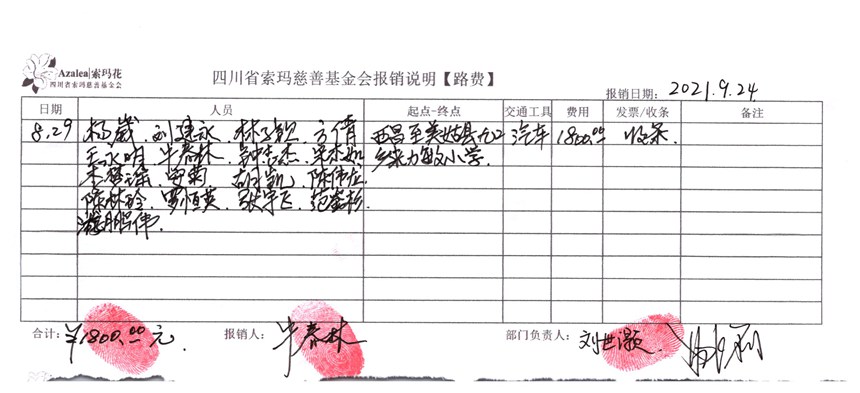 Azalea|索玛花
四川省索玛慈善基金会
四川省索玛慈善基金会报销说明【路费】
报销日期：2021.9.24
日期 人员 起点-终点 交通工具 费用 发票/收条 备注
8.29 杨崴．刘建永．林．方倩 西昌至美姑县九口 汽车 1800.00 收条
王永明．牛春林．钟志杰． 乡 小学．
．安菊．胡凯．陈伟
陈林玲．罗恒英．张宇飞．范
鹏伟．
合计：¥1800.00元 报销人：牛春林 部门负责人：刘世灏